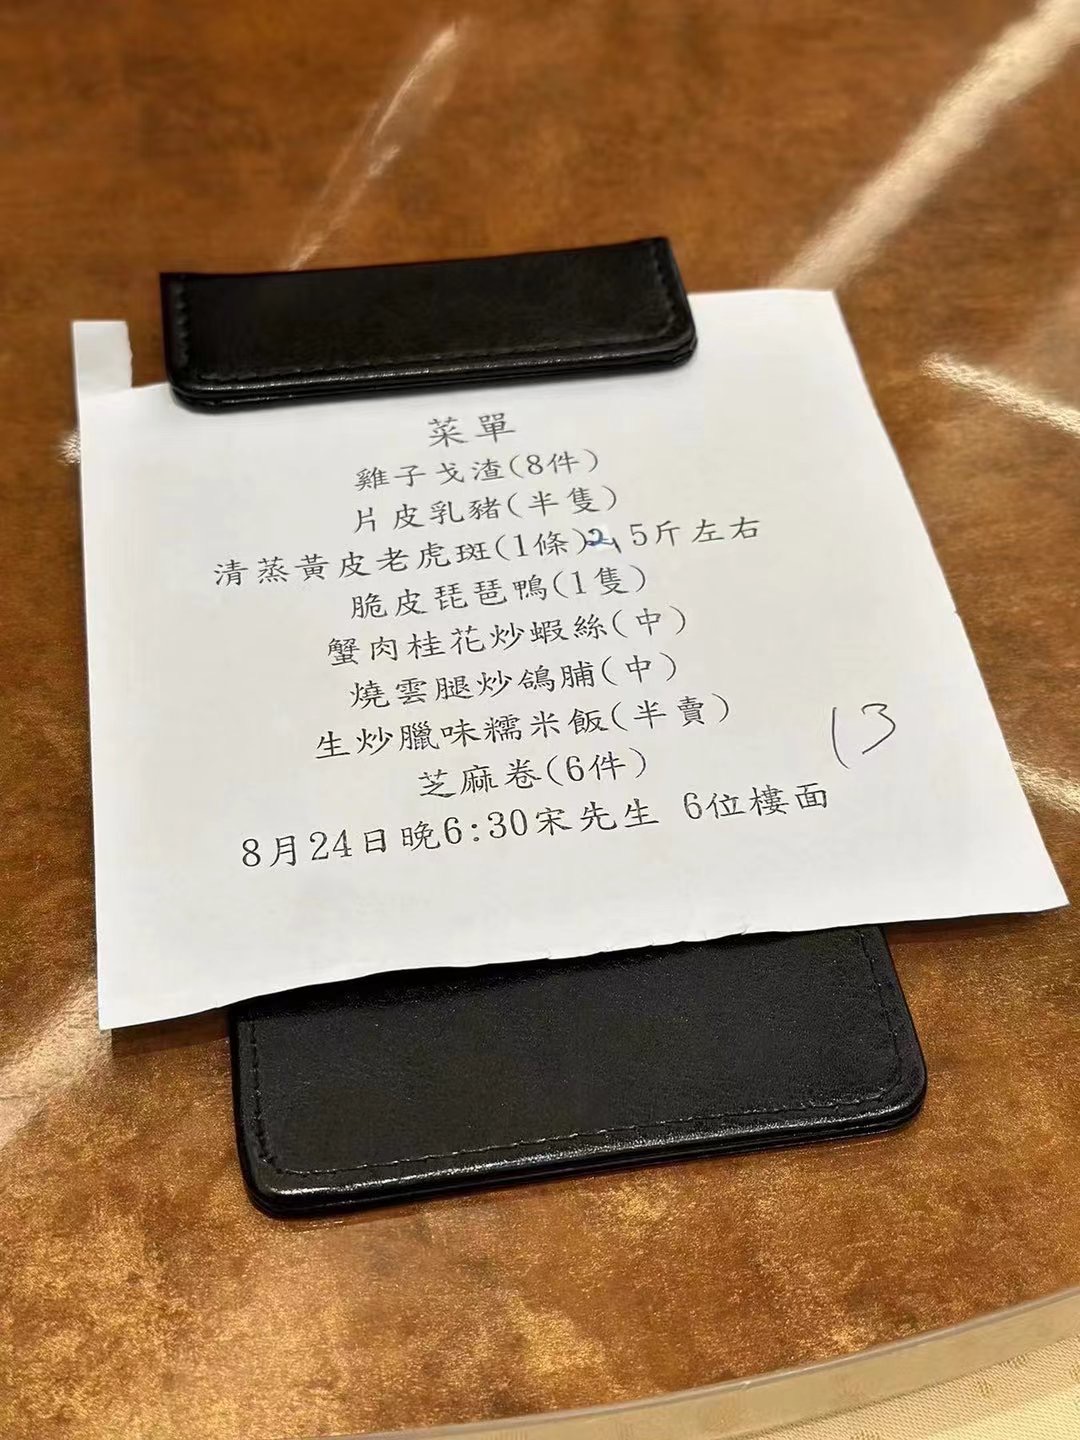 菜單
雞子戈渣(8件)
片皮乳豬(半隻)
清蒸黃皮老虎斑(1條)2.5斤左右
脆皮琵琶鴨(1隻)
蟹肉桂花炒蝦絲(中)
燒雲腿炒鴿脯(中)
生炒臘味糯米飯(半賣)
芝麻卷(6件)
8月24日晚6:30宋先生 6位樓面
13